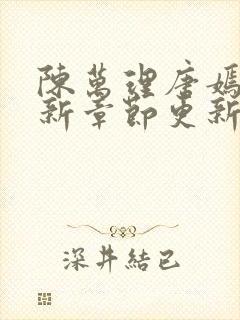 陳萬理唐嫣
新章節更新
深井結已